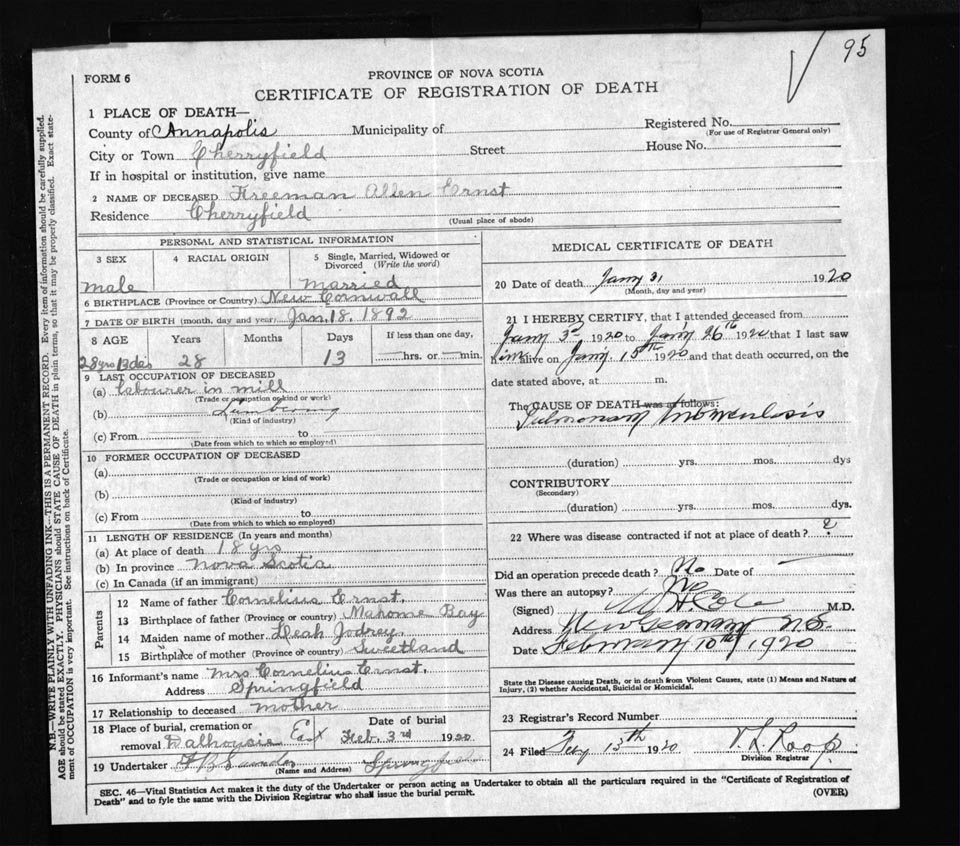 95
FORM 6
PROVINCE OF NOVA SCOTIA
CERTIFICATE OF REGISTRATION OF DEATH
1 PLACE OF DEATH—
County of Annapolis Municipality of
Registered No.
(For use of Registrar General only)
City or Town Cherryfield Street House No.
If in hospital or institution, give name
2 NAME OF DECEASED Freeman Allen Ernst
Residence Cherryfield
(Usual place of abode)
PERSONAL AND STATISTICAL INFORMATION
3 SEX 4 RACIAL ORIGIN 5 Single, Married, Widowed or
Divorced (Write the word)
male married
6 BIRTHPLACE (Province or Country) New Cornwall
7 DATE OF BIRTH (month, day and year) Jan. 18. 1892
8 AGE Years Months Days If less than one day,
28 yrs 13 das 28 13 hrs. or min.
9 LAST OCCUPATION OF DECEASED
(a) labourer in mill
(Trade or occupation or kind or work)
(b) Lumbering
(Kind of industry)
(c) From to
(Date from which to which so employed)
10 FORMER OCCUPATION OF DECEASED
(a)
(Trade or occupation or kind of work)
(b)
(Kind of industry)
(c) From to
(Date from which to which so employed)
11 LENGTH OF RESIDENCE (In years and months)
(a) At place of death 18 yrs
(b) In province Nova Scotia
(c) In Canada (if an immigrant)
Parents
12 Name of father Cornelius Ernst.
13 Birthplace of father (Province or country) Mahone Bay
14 Maiden name of mother Leah Jodrey.
15 Birthplace of mother (Province or country) Sweetland
16 Informant's name Mrs Cornelius Ernst.
Address Springfield
17 Relationship to deceased mother
18 Place of burial, cremation or Date of burial
removal Dalhousie East Feb. 3rd 1920
19 Undertaker Springfield
(Name and Address)
MEDICAL CERTIFICATE OF DEATH
20 Date of death Jany 31 1920
(Month, day and year)
21 I HEREBY CERTIFY, that I attended deceased from
Jany 3rd 1920 to Jany 26th 1920 that I last saw
him alive on Jany 15th 1920 and that death occurred, on the
date stated above, at m.
The CAUSE OF DEATH was as follows:
Pulmonary tuberculosis
(duration) yrs. mos. dys
CONTRIBUTORY
(Secondary)
(duration) yrs. mos. dys.
22 Where was disease contracted if not at place of death? ?
Did an operation precede death? No Date of
Was there an autopsy? No
(Signed) W H Cole M.D.
Address New Germany N.S.
Date February 10th 1920
State the Disease causing Death, or in death from Violent Causes, state (1) Means and Nature of
Injury, (2) whether Accidental, Suicidal or Homicidal.
23 Registrar's Record Number
24 Filed Fey 15th 1920 V. L. Roop.
Division Registrar
SEC. 46—Vital Statistics Act makes it the duty of the Undertaker or person acting as Undertaker to obtain all the particulars required in the "Certificate of Registration of
Death" and to fyle the same with the Division Registrar who shall issue the burial permit.
(OVER)
N.B.—WRITE PLAINLY WITH UNFADING INK—THIS IS A PERMANENT RECORD. Every item of information should be carefully supplied.
AGE should be stated EXACTLY. PHYSICIANS should STATE CAUSE OF DEATH in plain terms, so that it may be properly classified. Exact state-
ment of OCCUPATION is very important. See instructions on back of Certificate.